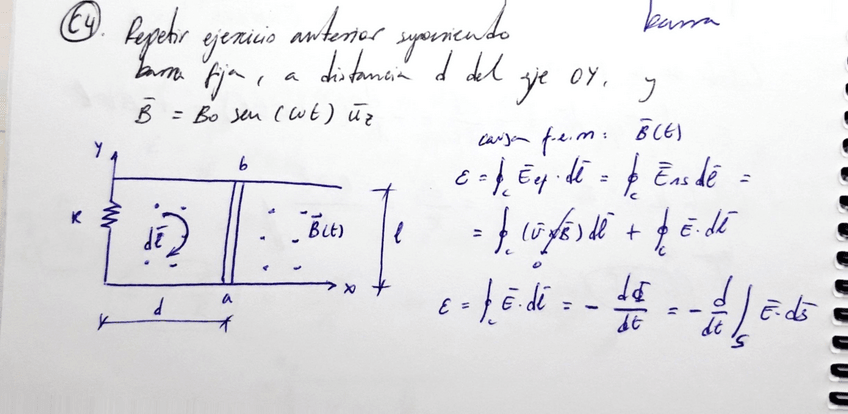 E4. Repetir ejercicio anterior suponiendo barra
barra fija, a distancia d del eje OY, y
B̄ = Bo sen (ωt) ūz
causa f.e.m: B̄(t)
ε = ∮c Ēef · dl̄ = ∮c Ēns dl̄ =
= ∮c (v̄ x B̄) dl̄ + ∮c Ē · dl̄
0
ε = ∮c Ē · dl̄ = - dΦ/dt = - d/dt ∫s Ē · ds̄
Y
b
R
dl̄
B̄(t)
l
a
x
d